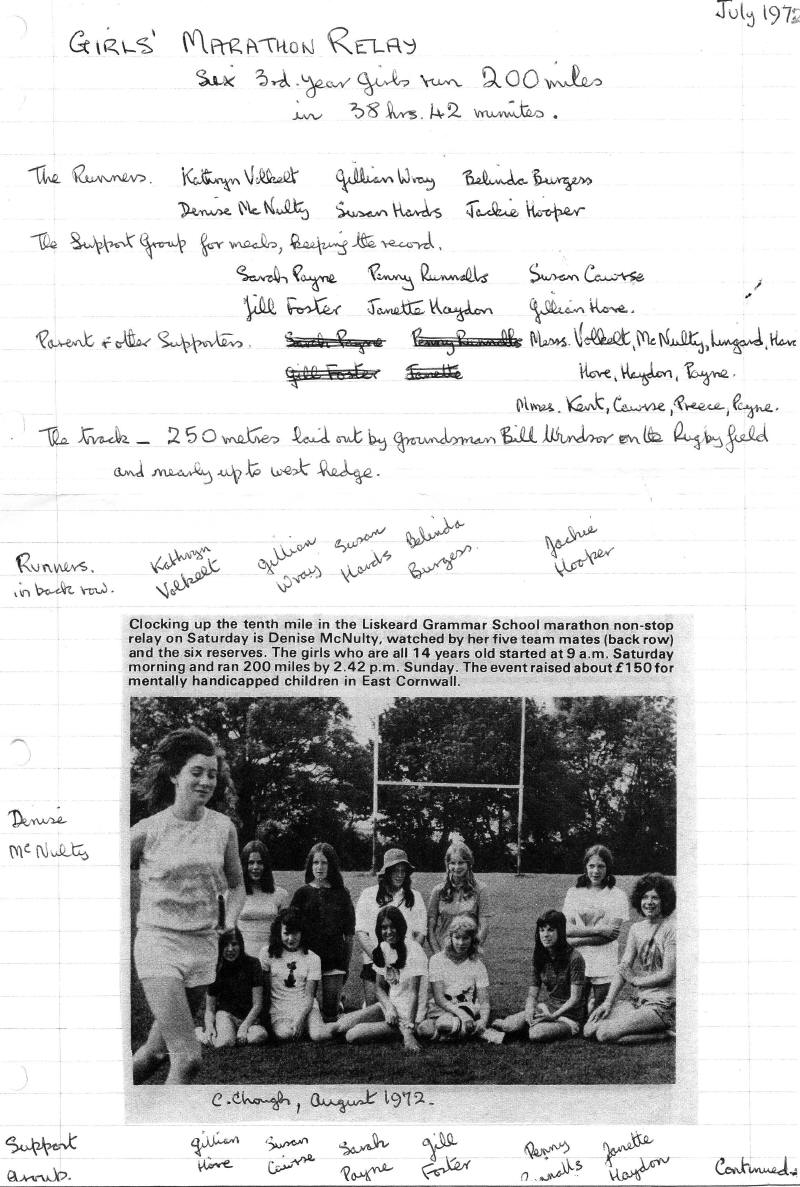 July 1972
GIRLS' MARATHON RELAY
Six 3rd. year girls run 200 miles
in 38 hrs. 42 minutes.
The Runners. Kathryn Volkelt Gillian Wray Belinda Burgess
Denise McNulty Susan Hards Jackie Hooper
The Support Group for meals, keeping the record.
Sarah Payne Penny Runnalls Susan Cawrse
Jill Foster Janette Haydon Gillian Hore.
Parent & other Supporters. Sarah Payne Penny Runnalls Messs. Volkelt, McNulty, Lungard, Hore
Gill Foster Janette Hore, Haydon, Payne.
Mmes. Kent, Cawrse, Preece, Payne.
The track – 250 metres laid out by groundsman Bill Windsor on the Rugby field
and nearly up to west hedge.
Runners. Kathryn Gillian Susan Belinda Jackie
in back row. Volkelt Wray Hards Burgess. Hooper
Clocking up the tenth mile in the Liskeard Grammar School marathon non-stop
relay on Saturday is Denise McNulty, watched by her five team mates (back row)
and the six reserves. The girls who are all 14 years old started at 9 a.m. Saturday
morning and ran 200 miles by 2.42 p.m. Sunday. The event raised about £150 for
mentally handicapped children in East Cornwall.
Denise
McNulty
C. Chough, August 1972.
Support Gillian Susan Sarah Gill Penny Janette
Group. Hore Cawrse Payne Foster Runnalls Haydon Continued.